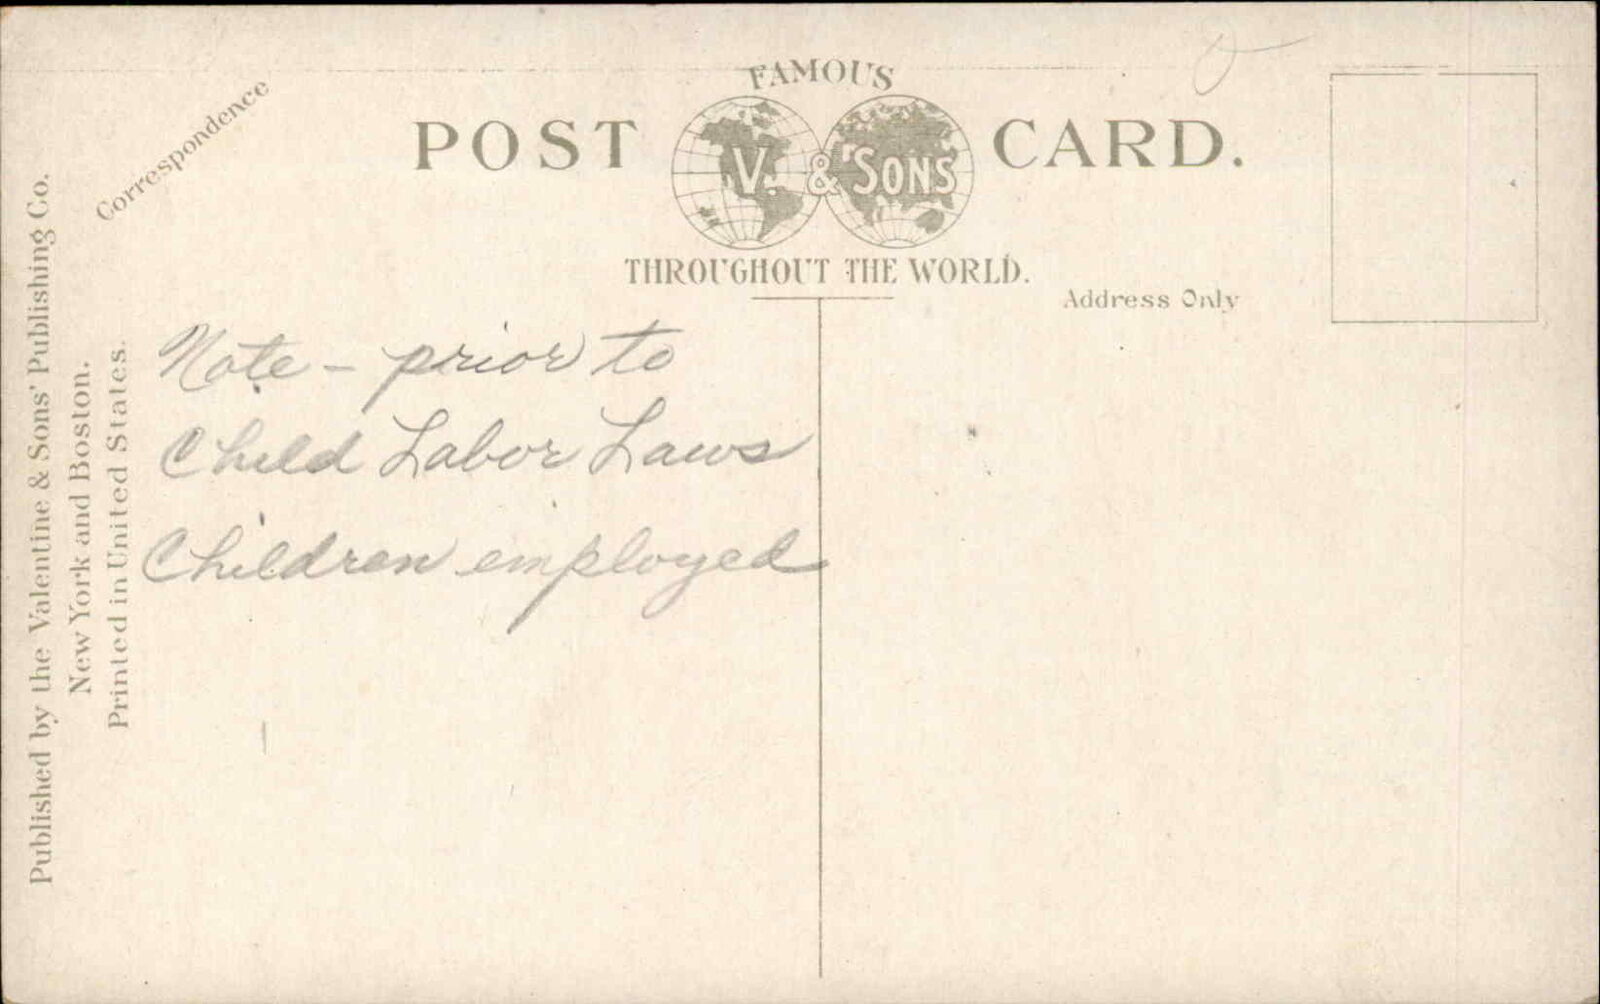 Correspondence
FAMOUS
POST CARD.
V. & SONS
THROUGHOUT THE WORLD.
Address Only
Published by the Valentine & Sons' Publishing Co.
New York and Boston.
Printed in United States.
Note - prior to
Child Labor Laws
Children employed